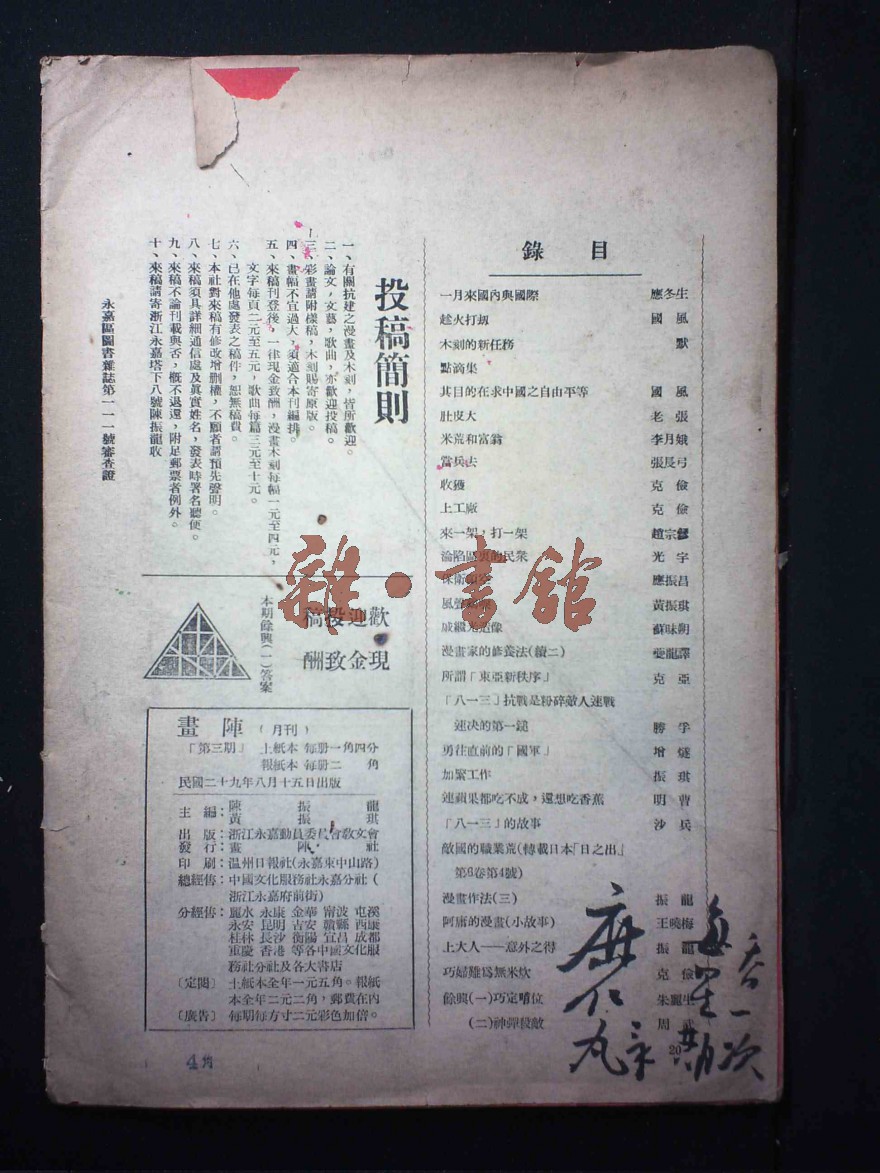 錄目
一月來國內與國際 應冬生
趁火打刼 國風
木刻的新任務 默
點滴集
其目的在求中國之自由平等 國風
肚皮大 老張
米荒和富翁 李月娥
當兵去 張長弓
收穫 克儉
上工廠 克儉
來一架，打一架 趙宗
淪陷區裏的民衆 光宇
應振昌
黃振琪
戚繼光造像 蘇味朔
漫畫家的修養法(續二) 龍譯
所謂「東亞新秩序」 克亞
「八一三」抗戰是粉碎敵人速戰
速决的第一鎚 勝孚
勇往直前的「國軍」 增燧
加緊工作 振琪
連蘋果都吃不成，還想吃香蕉 明曹
「八一三」的故事 沙兵
敵國的職業荒(轉載日本「日之出」
第6卷第4號)
漫畫作法(三) 振龍
阿庸的漫畫(小故事) 王曉梅
上大人——意外之得 振龍
巧婦難爲無米炊 克儉
餘興(一)巧定噴位 朱麗生
(二)神彈殺敵 周
20
投稿簡則
一、有關抗建之漫畫及木刻，皆所歡迎。
二、論文，文藝，歌曲，亦歡迎投稿。
三、彩畫請附樣稿，木刻賜寄原版。
四、畫幅不宜過大，須適合本刊編排。
五、來稿刊登後，一律現金致酬，漫畫木刻每幅一元至四元，
文字每頁二元至五元，歌曲每篇三元至十元。
六、已在他處發表之稿件，恕無稿費。
七、本社對來稿有修改增删權，不願者請預先聲明。
八、來稿須具詳細通信處及眞實姓名，發表時署名聽便。
九、來稿不論刊載與否，概不退還，附足郵票者例外。
十、來稿請寄浙江永嘉塔下八號陳振龍收
永嘉區圖書雜誌第一一一號審查證
歡迎投稿
現金致酬
本期餘興(一)答案
畫陣(月刊)
「第三期」 土紙本 每册一角四分
報紙本 每册二角
民國二十九年八月十五日出版
主編：陳振龍
黃振琪
出版：浙江永嘉動員委員會敎文會
發行：畫陣社
印刷：温州日報社(永嘉東中山路)
總經售：中國文化服務社永嘉分社(
浙江永嘉府前街)
分經售：麗水 永康 金華 甯波 屯溪
永安 昆明 吉安 贛縣 西康
桂林 長沙 衡陽 宜昌 成都
重慶 香港 等各中國文化服
務社分社及各大書店
〔定閱〕 土紙本全年一元五角。報紙
本全年二元二角，郵費在內
〔廣告〕 每期每方寸二元彩色加倍。
4角
雜·書館
每星期
一次